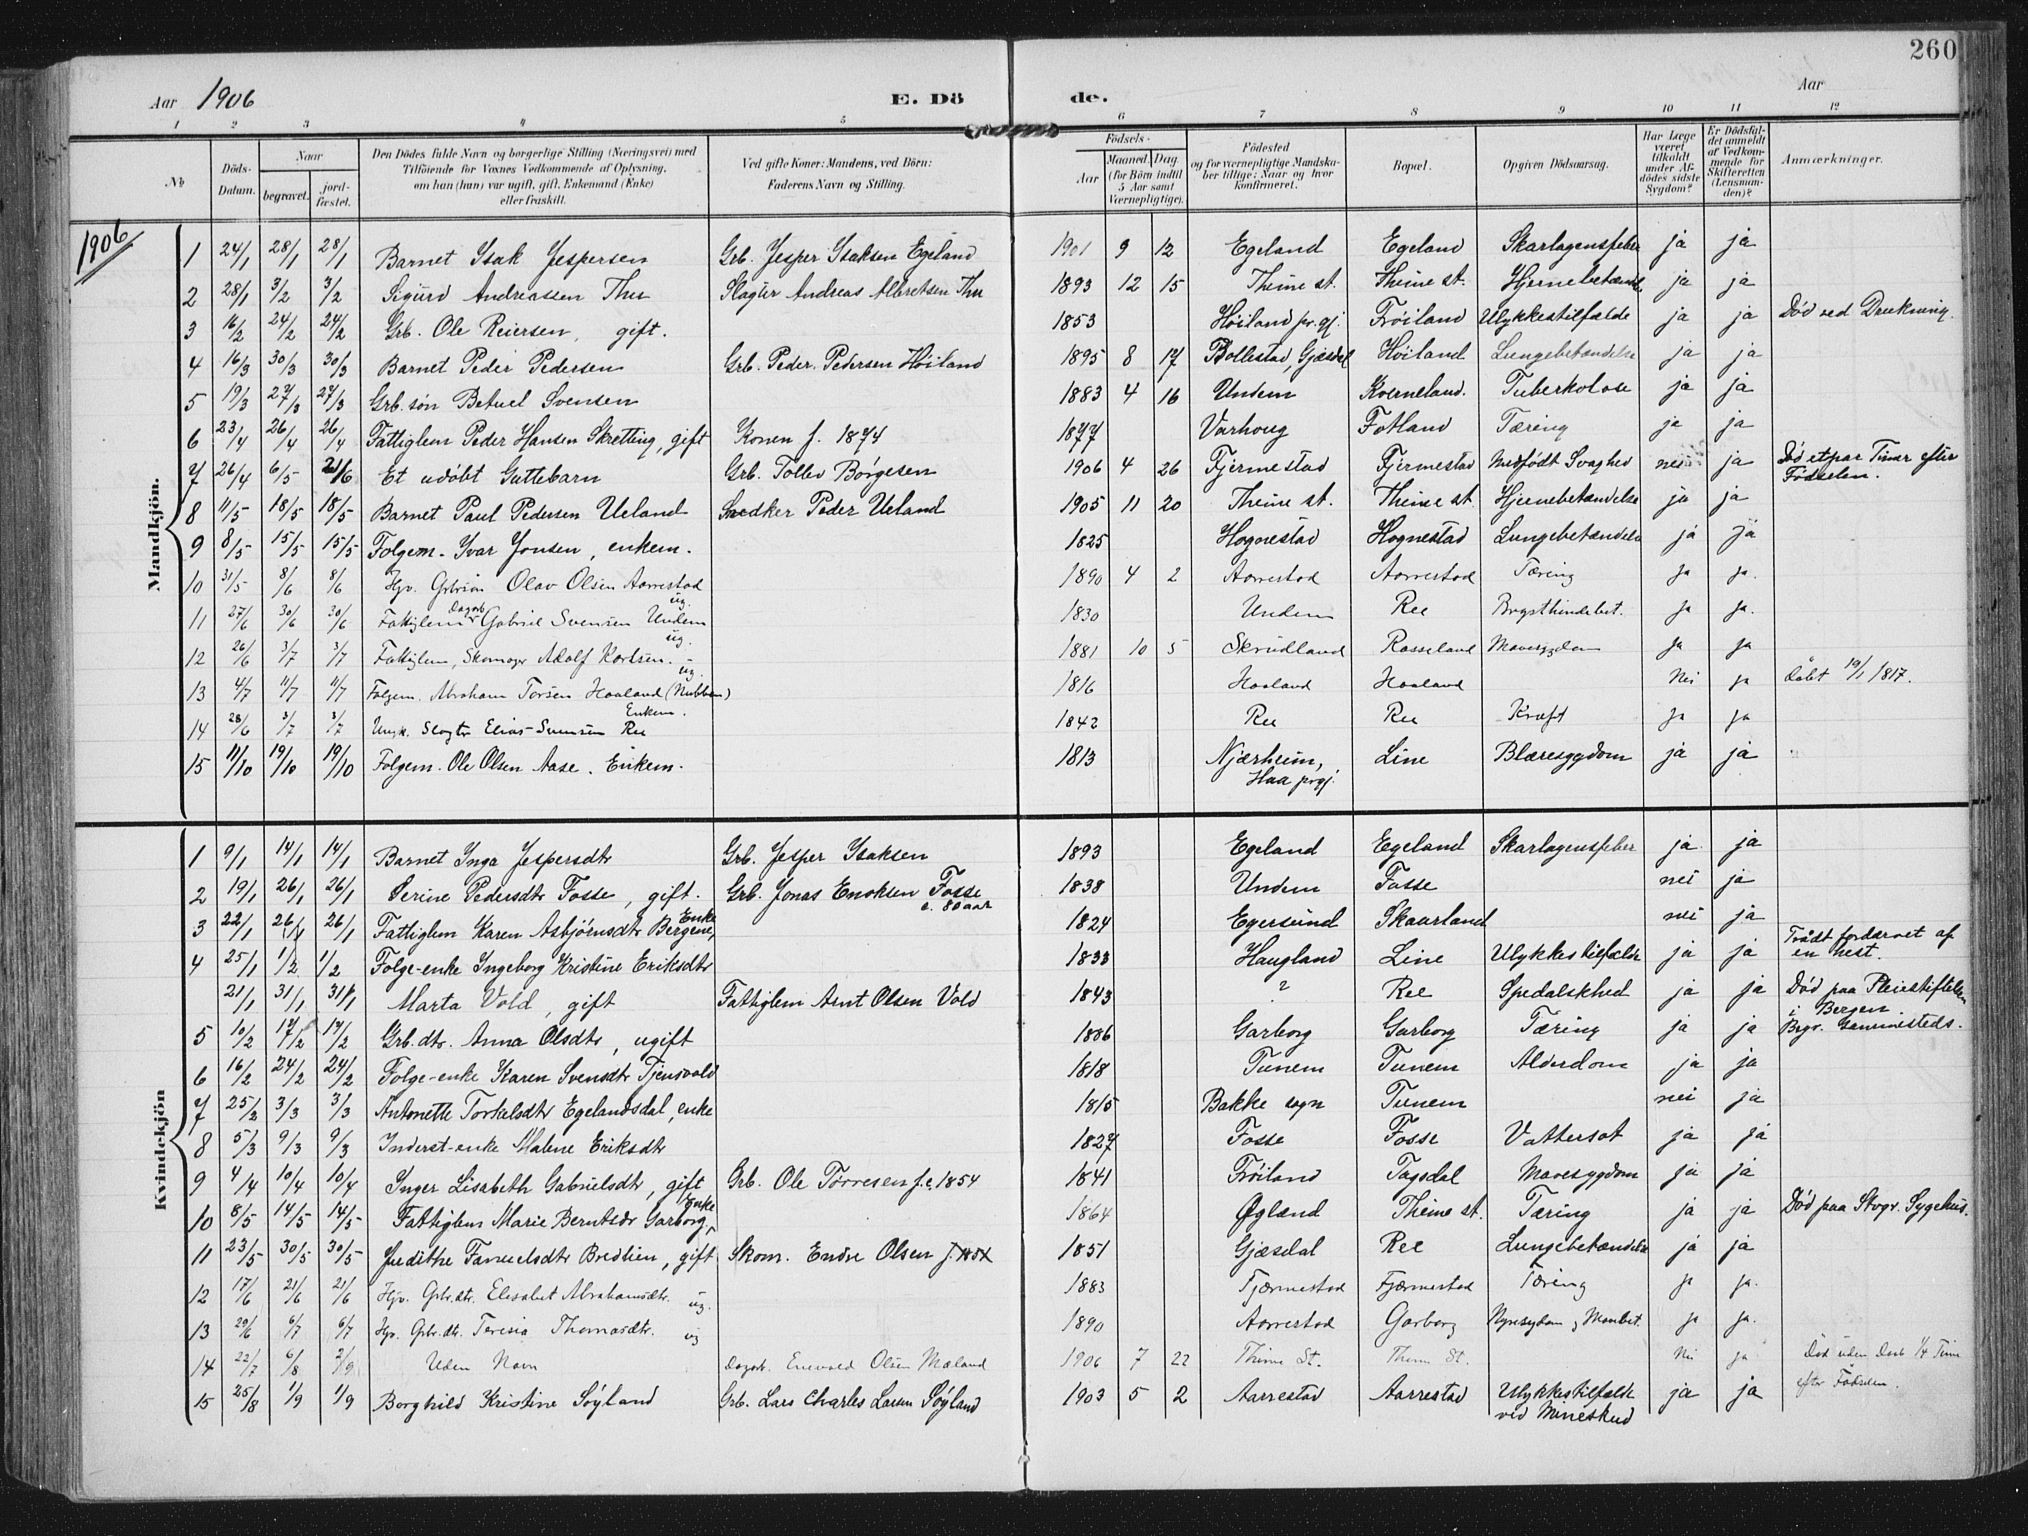 260
Aar 1906 E. Dö de. Aar
1 2 3 4 5 6 7 8 9 10 11 12
No Döds-Datum. Naar begravet. jord-fæstet. Den Dödes fulde Navn og borgerlige Stilling (Næringsvei) med Tilföiende for Voxnes Vedkommende af Oplysning, om han (hun) var ugift, gift, Enkemand (Enke) eller fraskilt. Ved gifte Koner: Mandens, ved Börn: Faderens Navn og Stilling. Födsels- Aar Maaned. Dag. (for Börn indtil 5 Aar samt Værnepligtige). Födested og for værnepligtige Mandskaber tillige: Naar og hvor konfirmeret. Bopæl. Opgiven Dödsaarsag. Har Læge været tilkaldt under Afdödes sidste Sygdom? Er Dödsfaldet anmeldt af Vedkommende for Skifteretten (Lensmanden)? Anmærkninger.
1906
Mandkjön.
1 24/1 28/1 28/1 Barnet Isak Jespersen Grb. Jesper Isaksen Egeland 1901 9 12 Egeland Egeland Skarlagensfeber ja ja
2 28/1 3/2 3/2 Sigurd Andreassen Thu Slagter Andreas Albretsen Thu 1893 12 15 Thime st. Thime st. Hjernebetænd. ja ja
3 16/2 24/2 24/2 Grb. Ole Reiersen, gift. 1853 Høiland pr.gj. Frøiland Ulykkestilfælde ja ja Død ved Drukning.
4 16/3 30/3 30/3 Barnet Peder Pedersen Grb. Peder Pedersen Høiland 1895 8 17 Bollestad, Gjæsdal Høiland Lungebetændelse ja ja
5 19/3 27/3 27/3 Grb. søn Betuel Svensen 1883 4 16 Undem Kverneland. Tuberkolose ja ja
6 23/4 26/4 26/4 Fattiglem Peder Hansen Skretting, gift Konen f. 1874 1877 Varhoug Fotland Tæring ja ja
7 26/4 6/5 21/6 Et udøbt Guttebarn Grb. Tollev Børgesen 1906 4 26 Fjermestad Fjermestad Medfødt Svaghed nei ja Død et par Timer efter Fødselen.
8 11/5 18/5 18/5 Barnet Paul Pedersen Ueland Snedker Peder Ueland 1905 11 20 Thime st. Thime st. Hjernebetændelse ja ja
9 8/5 15/5 15/5 Folgem. Ivar Jonsen, enkem. 1825 Hognestad Hognestad Lungebetændelse ja ja
10 31/5 8/6 8/6 Hjv. Grbrsøn Olav Olsen Aarrestad ug. 1890 4 2 Aarrestad Aarrestad Tæring Ja ja.
11 27/6 30/6 30/6 Fattiglem Dagarb. Gabriel Svensen Undem ug. 1830 Undem Ree Brysthindebet. Ja Ja.
12 26/6 3/7 3/7 Fattiglem, Skomager Adolf Karlsen. ug. 1881 10 5 Skrudland Rosseland Mavesygdom Ja Ja
13 4/7 11/7 11/7 Folgem. Abraham Torsen Haaland (Nubben) Enkem. 1816 Haaland Haaland Nei ja døbt 19/1 1817.
14 28/6 3/7 3/7 Ungk. Slagter Elias Svensen Ree 1842 Ree Ree Kræft Ja ja
15 11/10 19/10 19/10 Folgem. Ole Olsen Aase. Enkem. 1813 Njærheim, Haa prgj. Line Blæresygdom ja ja
Kvindekjön
1 9/1 14/1 14/1 Barnet Inga Jespersdtr Grb. Jesper Isaksen 1893 Egeland Egeland Skarlagensfeber ja ja
2 19/1 26/1 26/1 Serine Pedersdtr Fosse, gift. Grb. Jonas Enoksen Fosse c. 80 aar 1838 Undem Fosse nei ja
3 22/1 26/1 26/1 Fattiglem Karen Asbjørnsdtr Bergene, Enke 1824 Egersund Skaarland nei ja
4 25/1 1/2 1/2 Folge-enke Ingeborg Kristine Eriksdtr 1833 Haugland Line Ulykkestilfælde ja ja Traadt fordærvet af en hest.
21/1 31/1 31/1 Marta Vold, gift Fattiglem Arnt Olsen Vold 1843 ? Ree Spedalskhed ja ja Død paa Pleiestiftelsen i Bergen
5 10/2 17/2 17/2 Grb.dtr. Anna Olsdtr, ugift 1886 Garborg Garborg Tæring ja ja Begr. Gammesteds.
6 16/2 24/2 24/2 Folge-enke Karen Svensdtr Tjensvold 1818 Tunem Tunem Alderdom ja ja
7 25/2 3/3 3/3 Antonette Torkelsdtr Egelandsdal, enke 1815 Bakke sogn Tunem nei ja
8 5/3 9/3 9/3 Inderst-enke Malene Eriksdtr 1827 Fosse Fosse Vattersot ja ja
9 4/4 10/4 10/4 Inger Lisabeth Gabrielsdtr, gift Grb. Ole Torresen f. c. 1854 1841 Frøiland Tagsdal Mavesygdom ja ja
10 8/5 14/5 14/5 Fattiglem Marie Berntsdr Garborg, Enke 1864 Øglænd Thime st. Tæring ja ja Død paa Stvgr. Sygehus.
11 23/5 30/5 30/5 Judithe Samuelsdtr Bredlien, gift Skom. Endre Olsen 1851 Gjæsdal Ree Lungebetændelse ja ja
12 17/6 21/6 21/6 Hjv. Grbr.dtr. Elisabet Abrahamsdtr. ug. 1883 Fjærmestad Fjærmestad Tæring Ja Ja.
13 29/6 6/7 6/7 Hjv. Grbr.dtr. Teresia Thomasdtr. ug 1890 Aarrestad Garborg Nyresygdom Ja Ja.
14 22/7 6/8 2/9 Uden Navn Dagarb. Enevald Olsen Mæland 1906 7 22 Thime St. Thime St. Nei ja Død uden Daab 1/4 Time efter Fødselen.
15 25/8 1/9 1/9 Borghild Kristine Søyland Grb. Lars Charles Larsen Søyland 1903 5 2 Aarrestad Aarrestad Ulykkestilfælde ved Mineskud ja ja